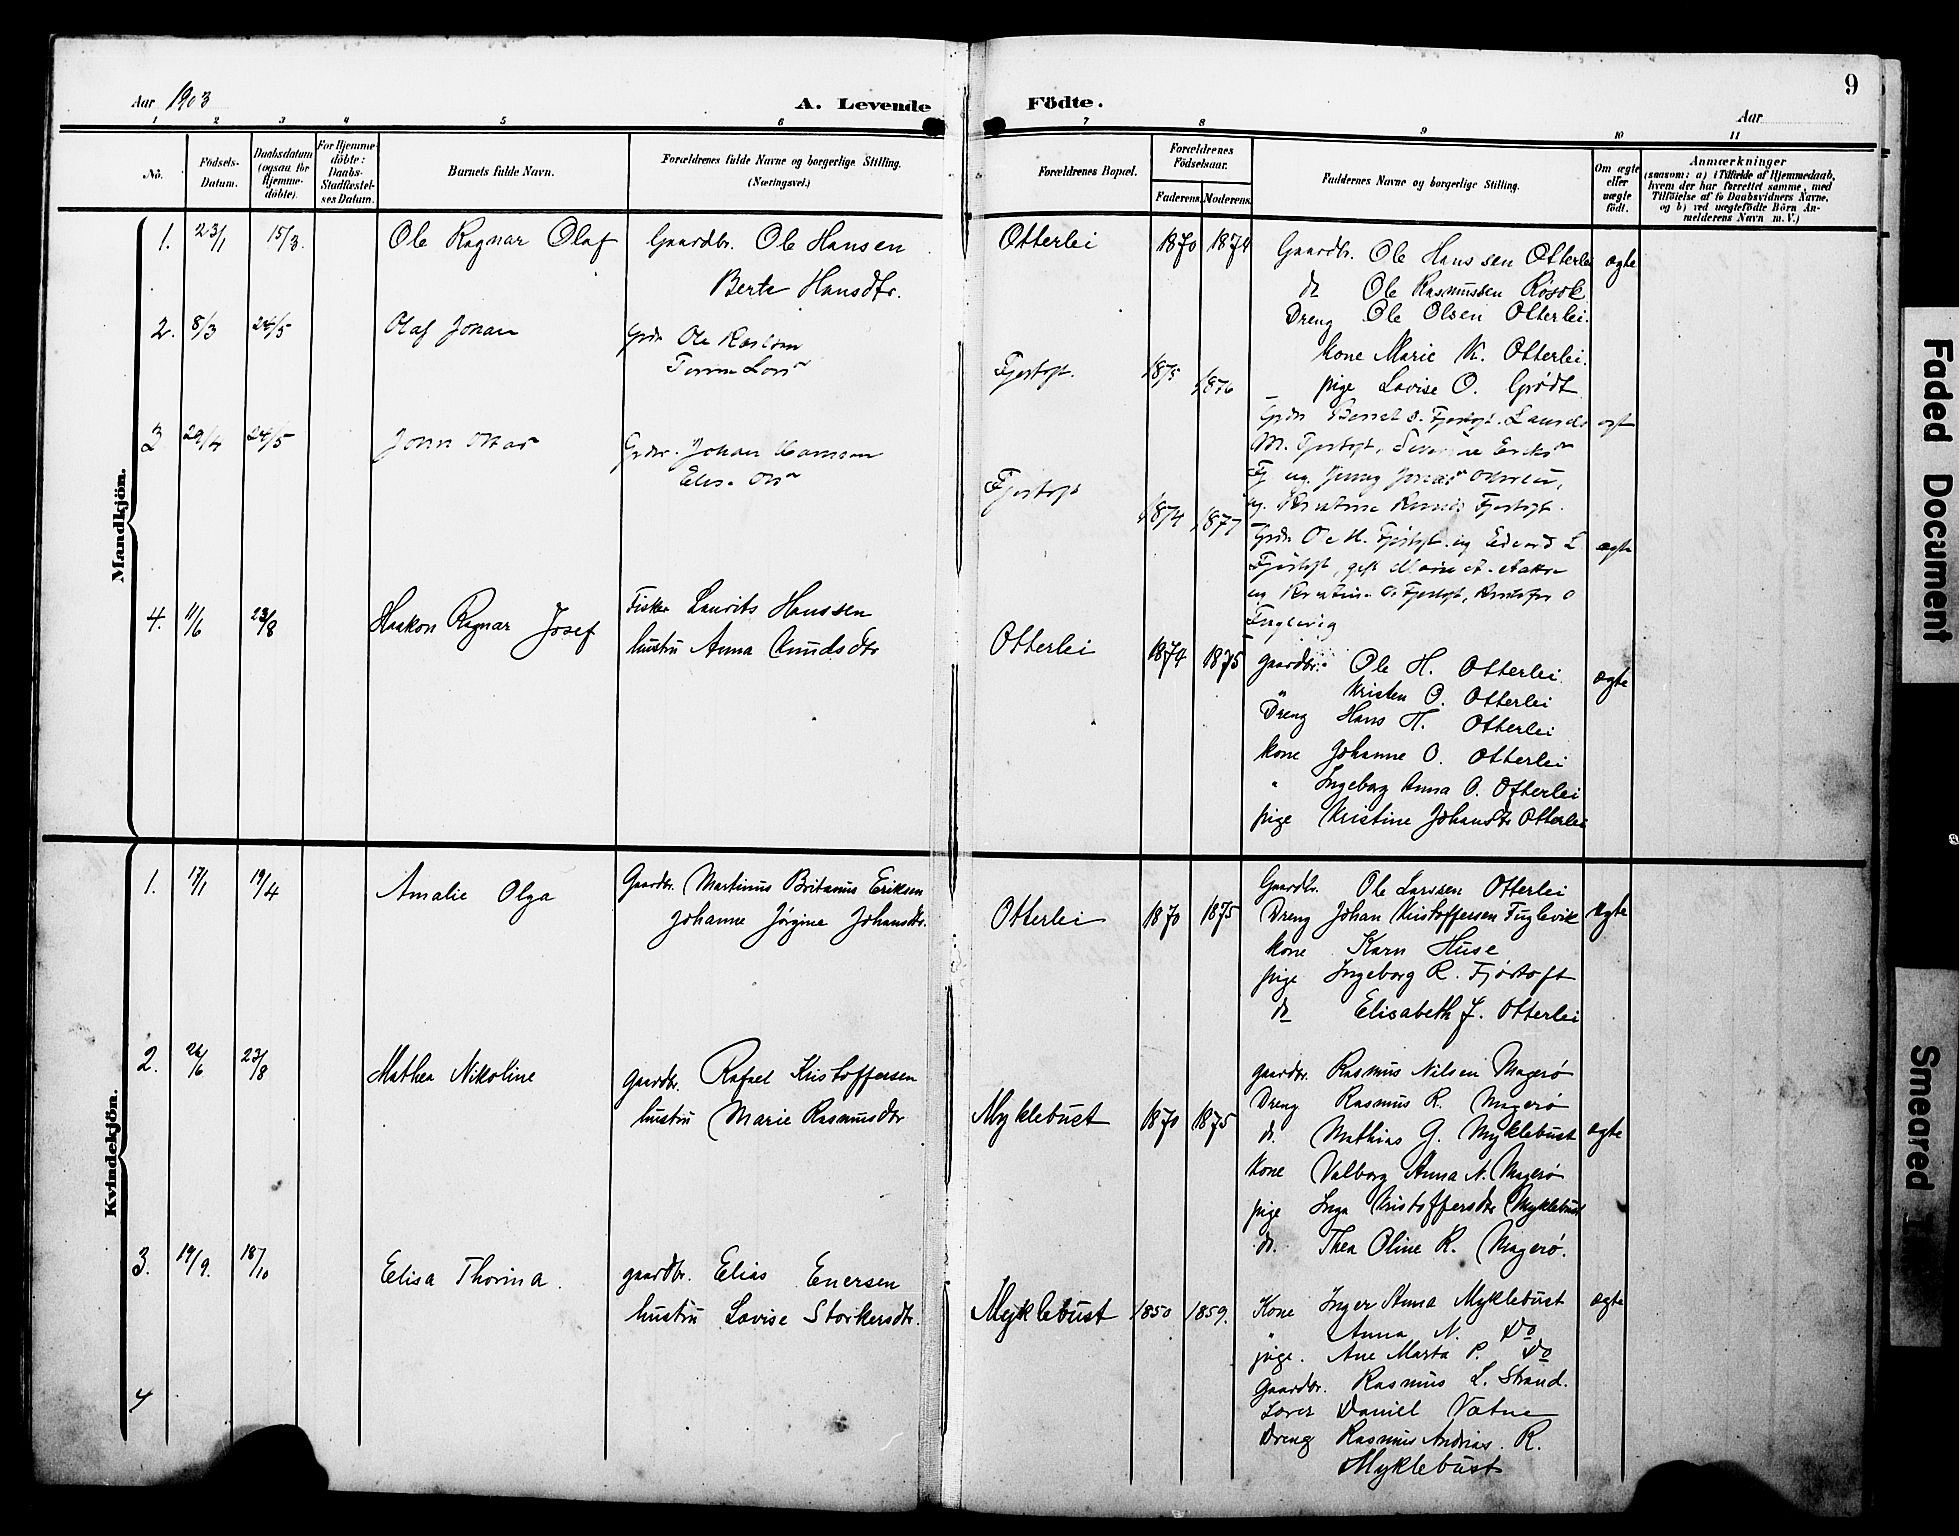 9
Aar 1903
A. Levende Födte.
Aar
1 2 3 4 5 6 7 8 9 10 11
No.
Födsels-Datum.
Daabsdatum (ogsaa for Hjemme-döbte).
For Hjemme-döbte: Daabs-Stadfæstel-ses Datum.
Barnets fulde Navn.
Forældrenes fulde Navne og borgerlige Stilling. (Næringsvei.)
Forældrenes Bopæl.
Forældrenes Födselsaar.
Faderens. Moderens.
Faddernes Navne og borgerlige Stilling.
Om ægte eller uægte födt.
Anmærkninger
(saasom: a) i Tilfælde af Hjemmedaab,
hvem der har forrettet samme, med
Tilföielse af to Daabsvidners Navne,
og b) ved uægtefödte Börn An-
melderens Navn m. V.)
Mandkjön.
1. 23/1 15/3. Ole Ragnar Olaf Gaardbr. Ole Hansen Otterlei 1870 1874 Gaardbr. Ole Hanssen Otterlei ægte
Berte Hansdtr. do Ole Rasmussen Røsok
Dreng Ole Olsen Otterlei.
kone Marie K. Otterlei.
pige Lovise O. Grødt
2. 8/3 24/5 Olaf Johan Grdr. Ole Karlsen
Fjørtoft. 1875 1876
3 29/4 24/5 Grdr. Johan Hansen
Fjørtoft 1874 1877 ægte
Fuglevig
4. 11/6 23/8 Haakon Ragnar Josef Fisker Laurits Hanssen Otterlei 1874 1875 gaardbr. Ole H. Otterlei ægte
hustru Anna Knudsdtr " Kristen O. Otterlei
Dreng Hans H. Otterlei
kone Johanne O. Otterlei
" Ingeborg Anna O. Otterlei
pige Kristine Johansdtr Otterlei
Kvindekjön.
1. 17/1 19/4 Amalie Olga Gaardbr. Martinus Britanus Eriksen Otterlei 1870 1875 Gaardbr. Ole Larssen Otterlei ægte
Johanne Jørgine Johansdtr. Dreng Johan Kristoffersen Fuglevik
kone Karn Huse
pige Ingeborg R. Fjørtoft
do Elisabeth J. Otterlei
2. 26/6 23/8 Mathea Nikoline gaardbr. Rafael Kristoffersen Myklebust 1870 1875 gaardbr. Rasmus Nilsen Magerø ægte
hustru Marie Rasmusdtr Dreng Rasmus R. Magerø
do. Mathias G. Myklebust
kone Valborg Anna N. Magerø
pige Inga Kristoffersdtr Myklebust
do. Thea Oline R. Magerø.
3. 19/9. 18/10 Elisa Thorina. gaardbr. Elias Enersen Myklebust 1850 1859. Kone Inger Anna Myklebust ægte
hustru Lovise Storkersdtr. " Anna N. Do
pige. Ane Marta P. Do
Gaardbr. Rasmus L. Strand.
Lærer Daniel Vatne
Dreng Rasmus Andrias. R.
Myklebust
4
Faded Document
Smeared